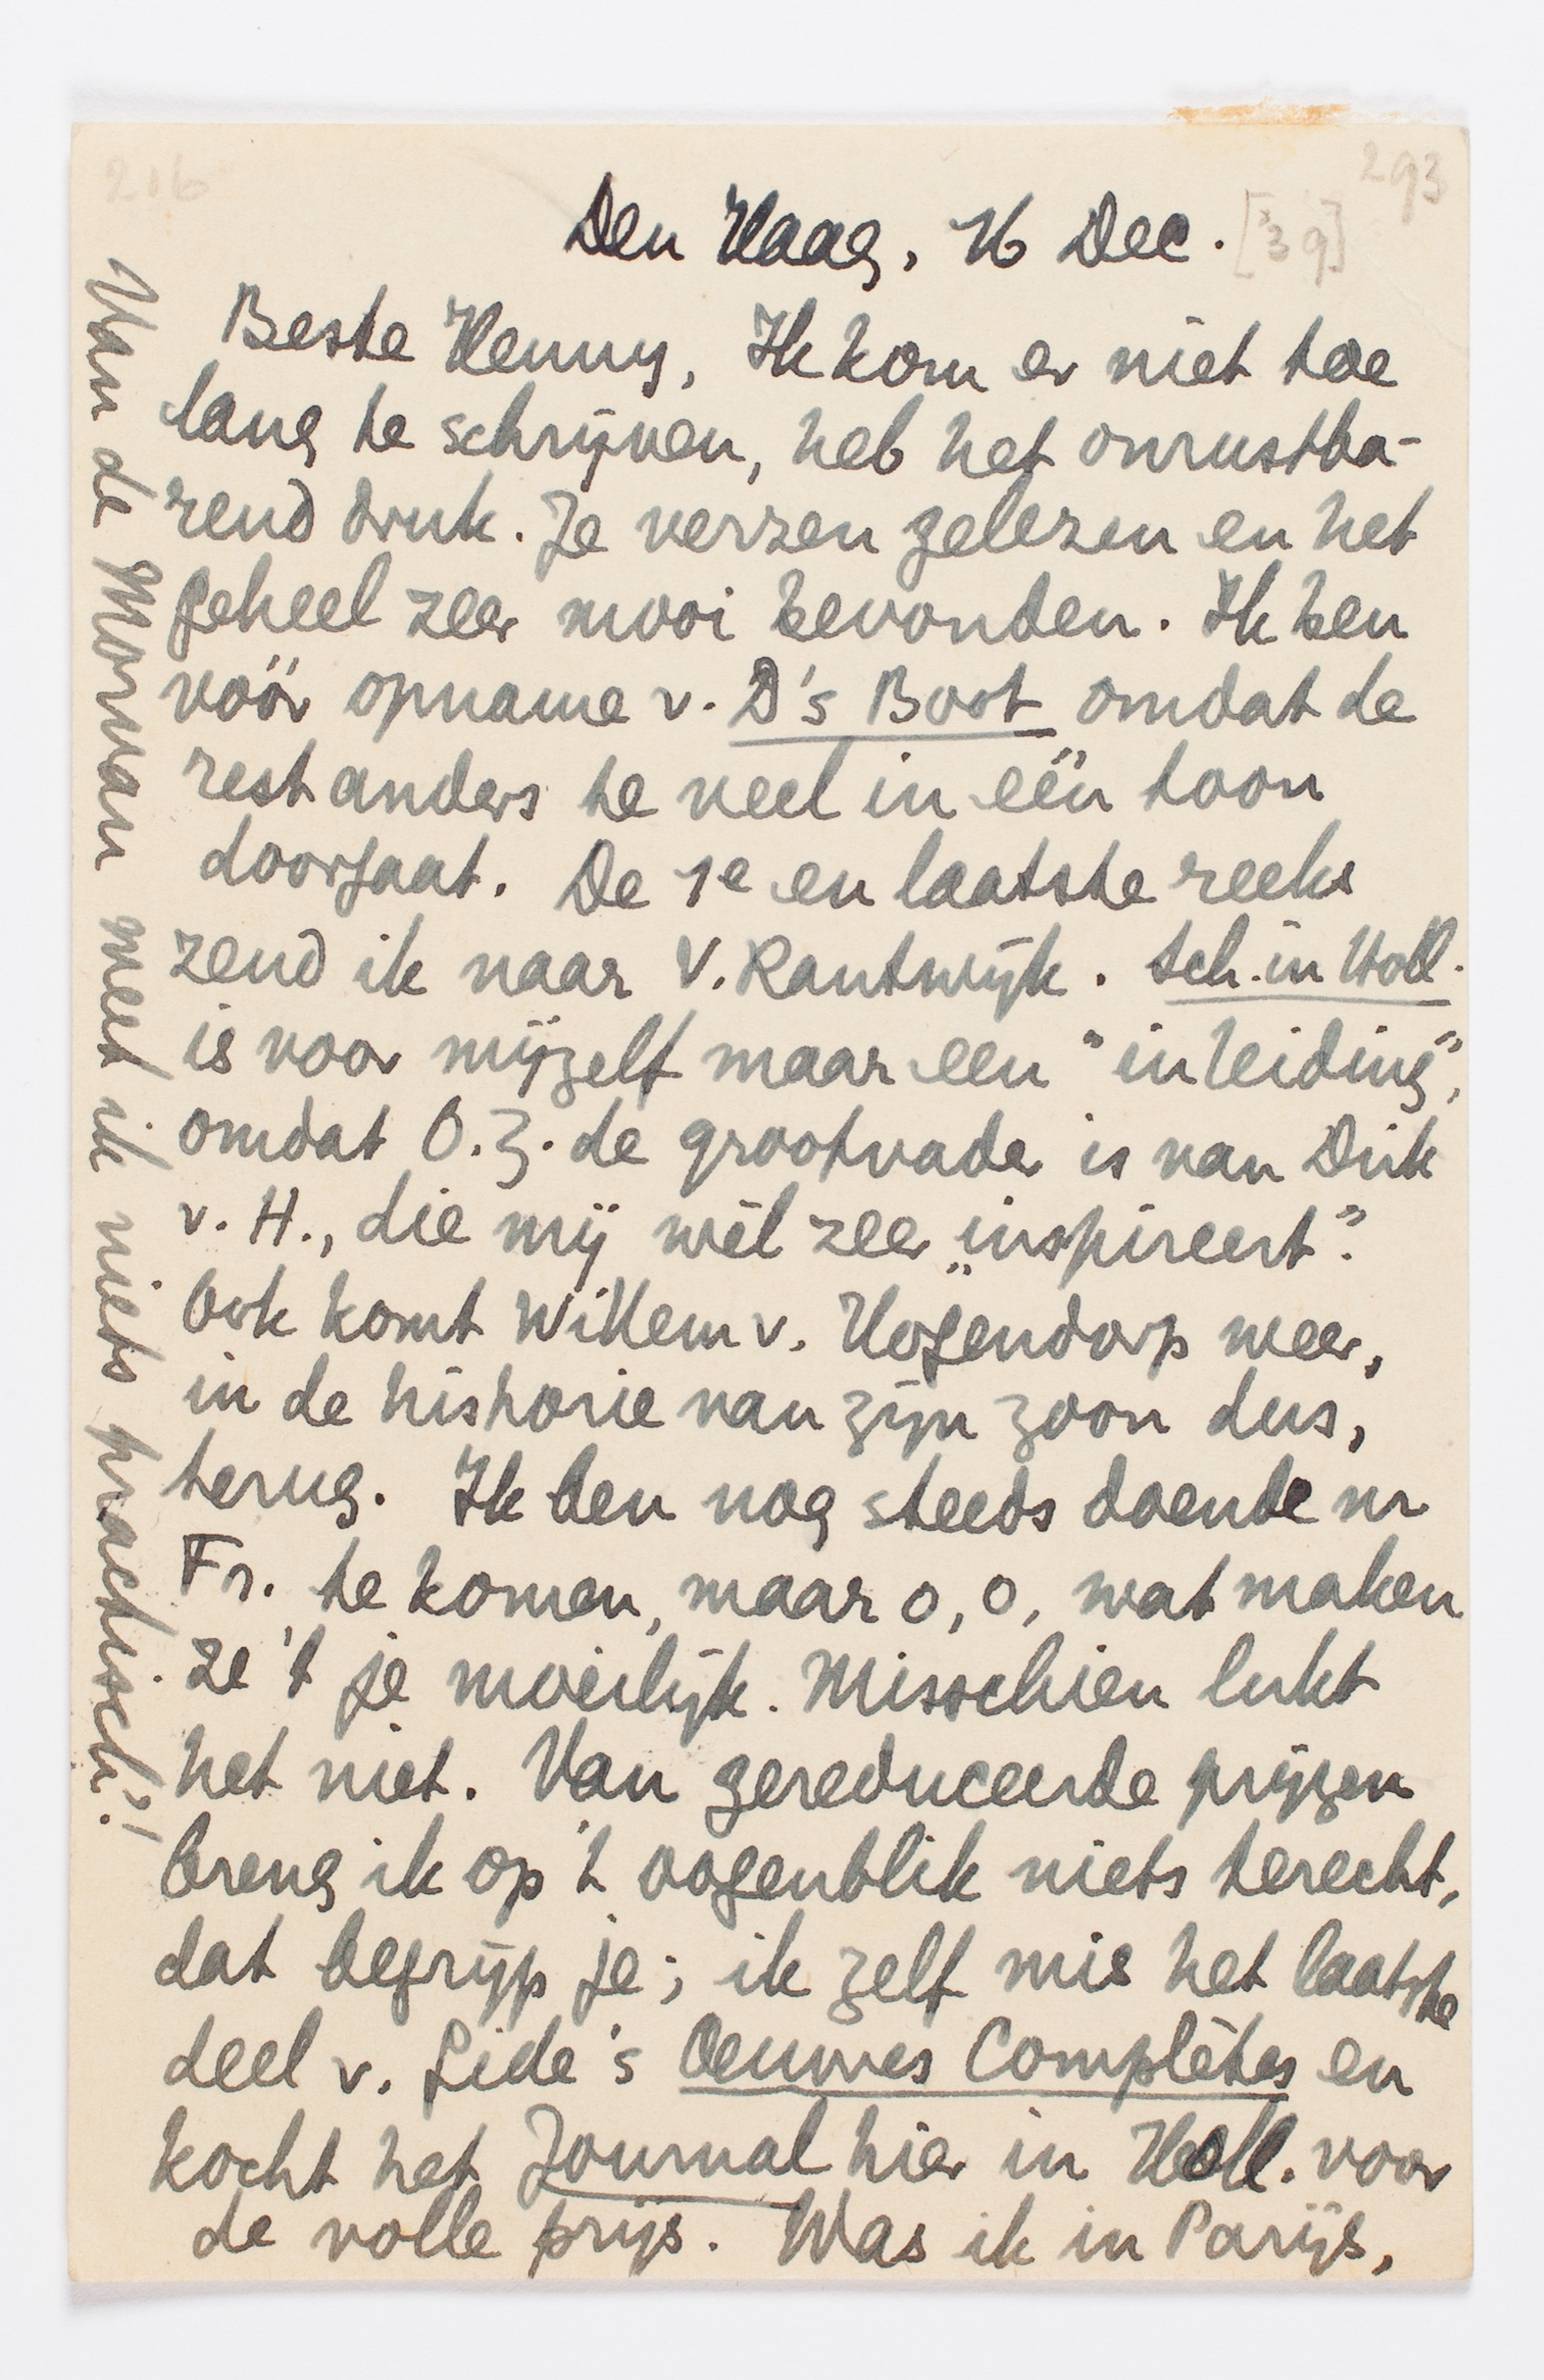 216
293
Den Haag, 16 Dec. [39]
Beste Henny, Ik kom er niet toe
lang te schrijven, heb het onrustba-
rend druk. Je verzen gelezen en het
geheel zeer mooi bevonden. Ik ben
vóór opname v. D's Boot omdat de
rest anders te veel in één toon
doorgaat. De 1e en laatste reeks
zend ik naar V. Kantwijk. Sch. in Holl.
is voor mijzelf maar een "inleiding",
omdat O.Z. de grootvader is van Dirk
v. H., die mij wèl zeer „inspireert".
Ook komt Willem v. Hogendorp weer,
in de historie van zijn zoon dus,
terug. Ik ben nog steeds doende nr
Fr. te komen, maar o, o, wat maken
ze 't je moeilijk. Misschien lukt
het niet. Van gereduceerde prijzen
breng ik op 't oogenblik niets terecht,
dat begrijp je; ik zelf mis het laatste
deel v. Gide's Oeuvres Complètes en
kocht het Journal hier in Holl. voor
de volle prijs. Was ik in Parijs,
Van de Morvan weet ik niets practisch!